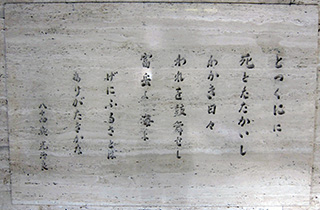 とつくにに
死とたたかいし
わかき日々
われを鼓舞せし
富岳よ海よ
げにふるさとは
ありがたきかな
八十四歳